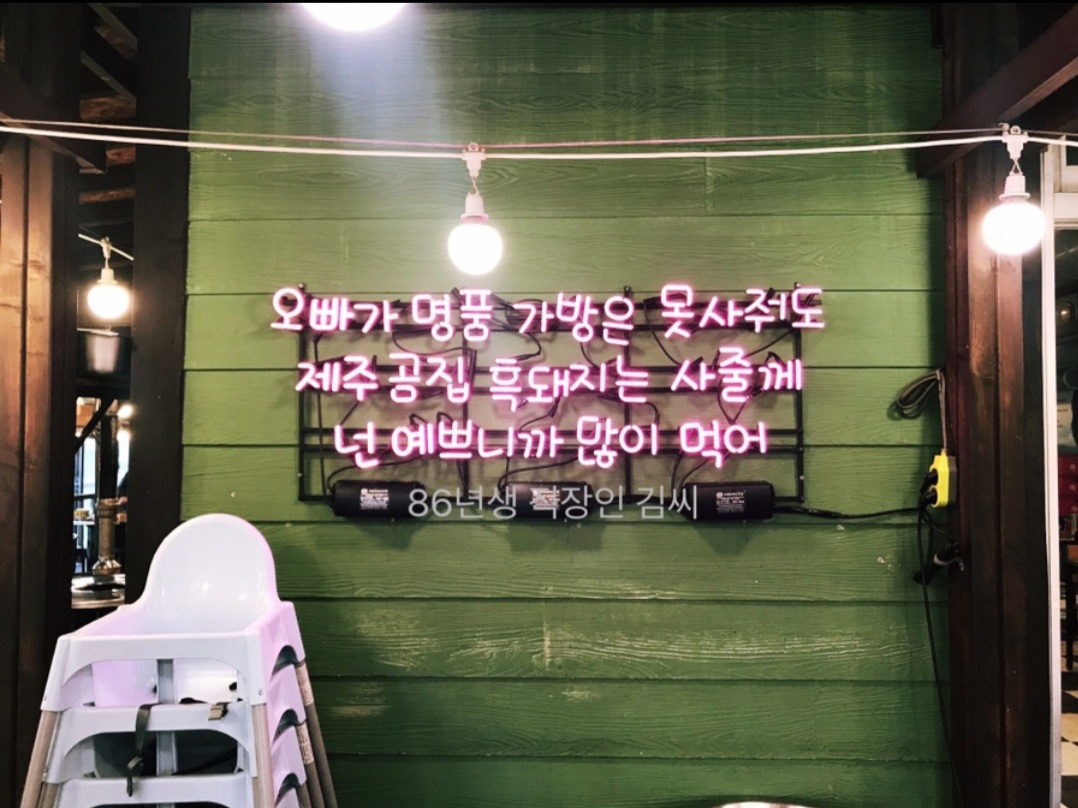 오빠가 명품 가방은 못사줘도
제주공집 흑돼지는 사줄께
넌 예쁘니까 많이 먹어
86년생 직장인 김씨